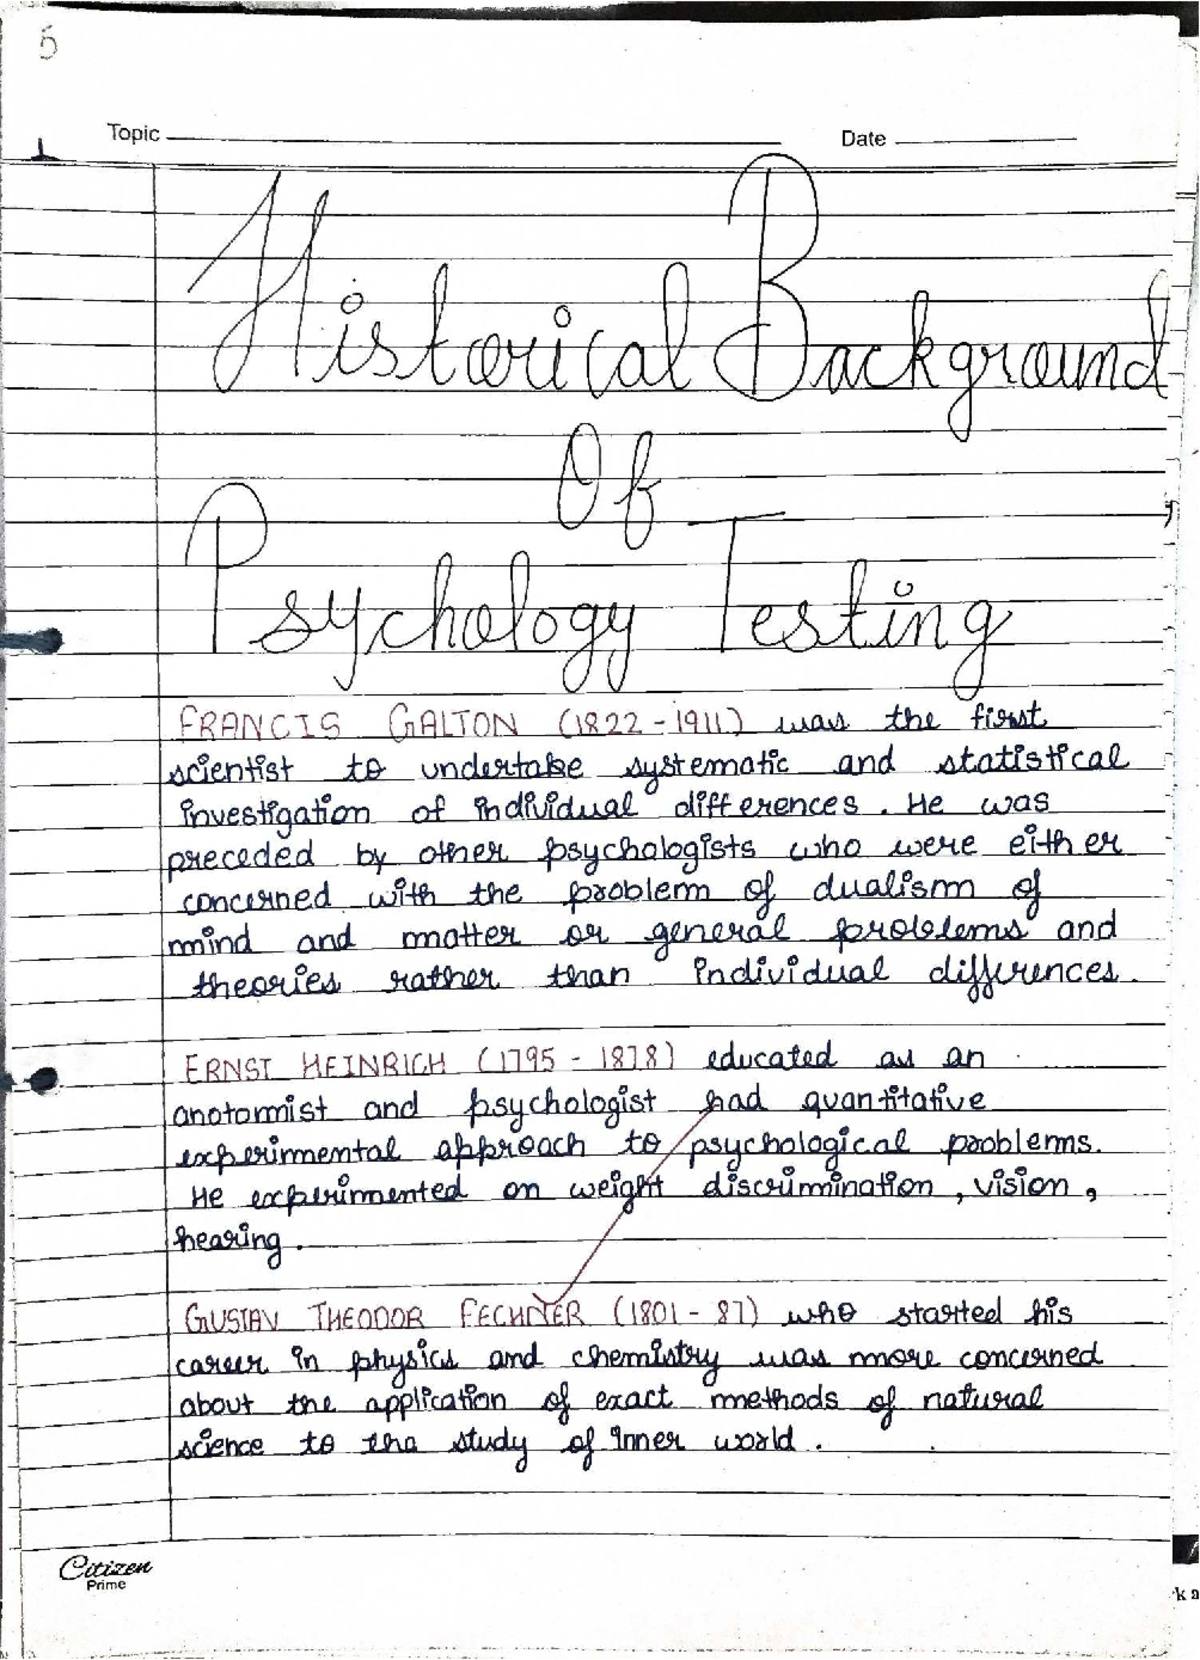 5
Topic
Date
Historical Background
Of
Psychology Testing
FRANCIS GALTON (1822 - 1911) was the first
scientist to undertake systematic and statistical
investigation of individual differences. He was
preceded by other psychologists who were either
concerned with the problem of dualism of
mind and matter or general problems and
theories rather than individual differences.
ERNST HEINRICH (1795 - 1878) educated as an
anatomist and psychologist had quantitative
experimental approach to psychological problems.
He experimented on weight discrimination, vision,
hearing.
GUSTAV THEODOR FECHNER (1801 - 87) who started his
career in physics and chemistry was more concerned
about the application of exact methods of natural
science to tha study of inner world.
Citizen
Prime